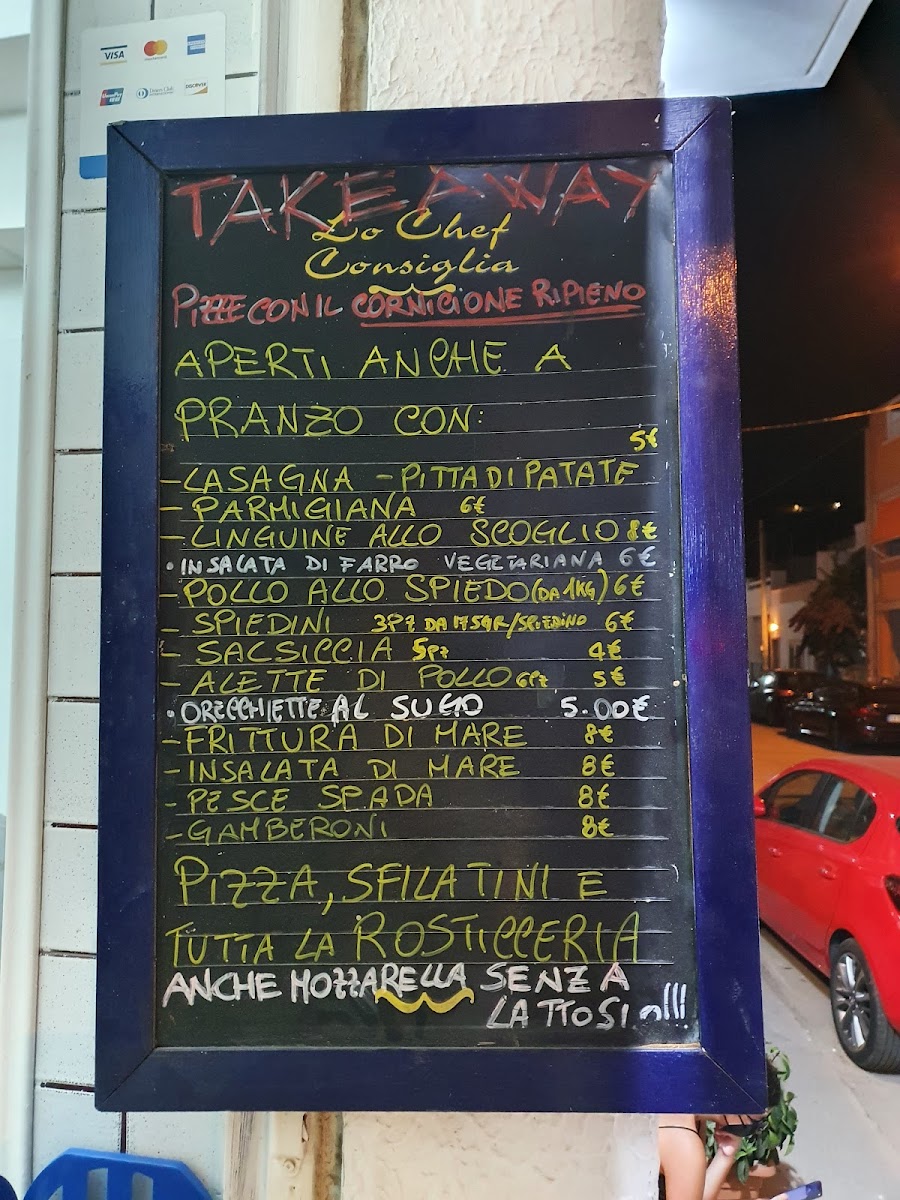 VISA
DISCOVER
TAKE AWAY
Lo Chef
Consiglia
PIZZE CON IL CORNICIONE RIPIENO
APERTI ANCHE A
PRANZO CON:
5€
- LASAGNA - PITTA DI PATATE
- PARMIGIANA 6€
- LINGUINE ALLO SCOGLIO 8€
• INSALATA DI FARRO VEGETARIANA 6€
- POLLO ALLO SPIEDO (DA 1KG) 6€
- SPIEDINI 3PZ DA 175GR/SPIEDINO 6€
- SALSICCIA 5PZ 4€
- ALETTE DI POLLO 6PZ 5€
• ORECCHIETTE AL SUGO 5.00€
- FRITTURA DI MARE 8€
- INSALATA DI MARE 8€
- PESCE SPADA 8€
- GAMBERONI 8€
PIZZA, SFILATINI E
TUTTA LA ROSTICCERIA
ANCHE MOZZARELLA SENZA
LATTOSIO!!!